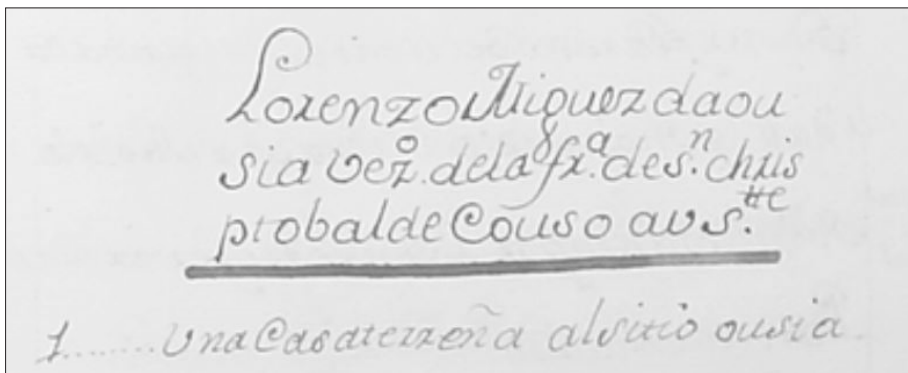 Lorenzo Miguez daou
sia vez.º dela fr.ª de s.n chris
ptobal de Couso aus.tte
1........ Una Casa terreña al sitio ousia